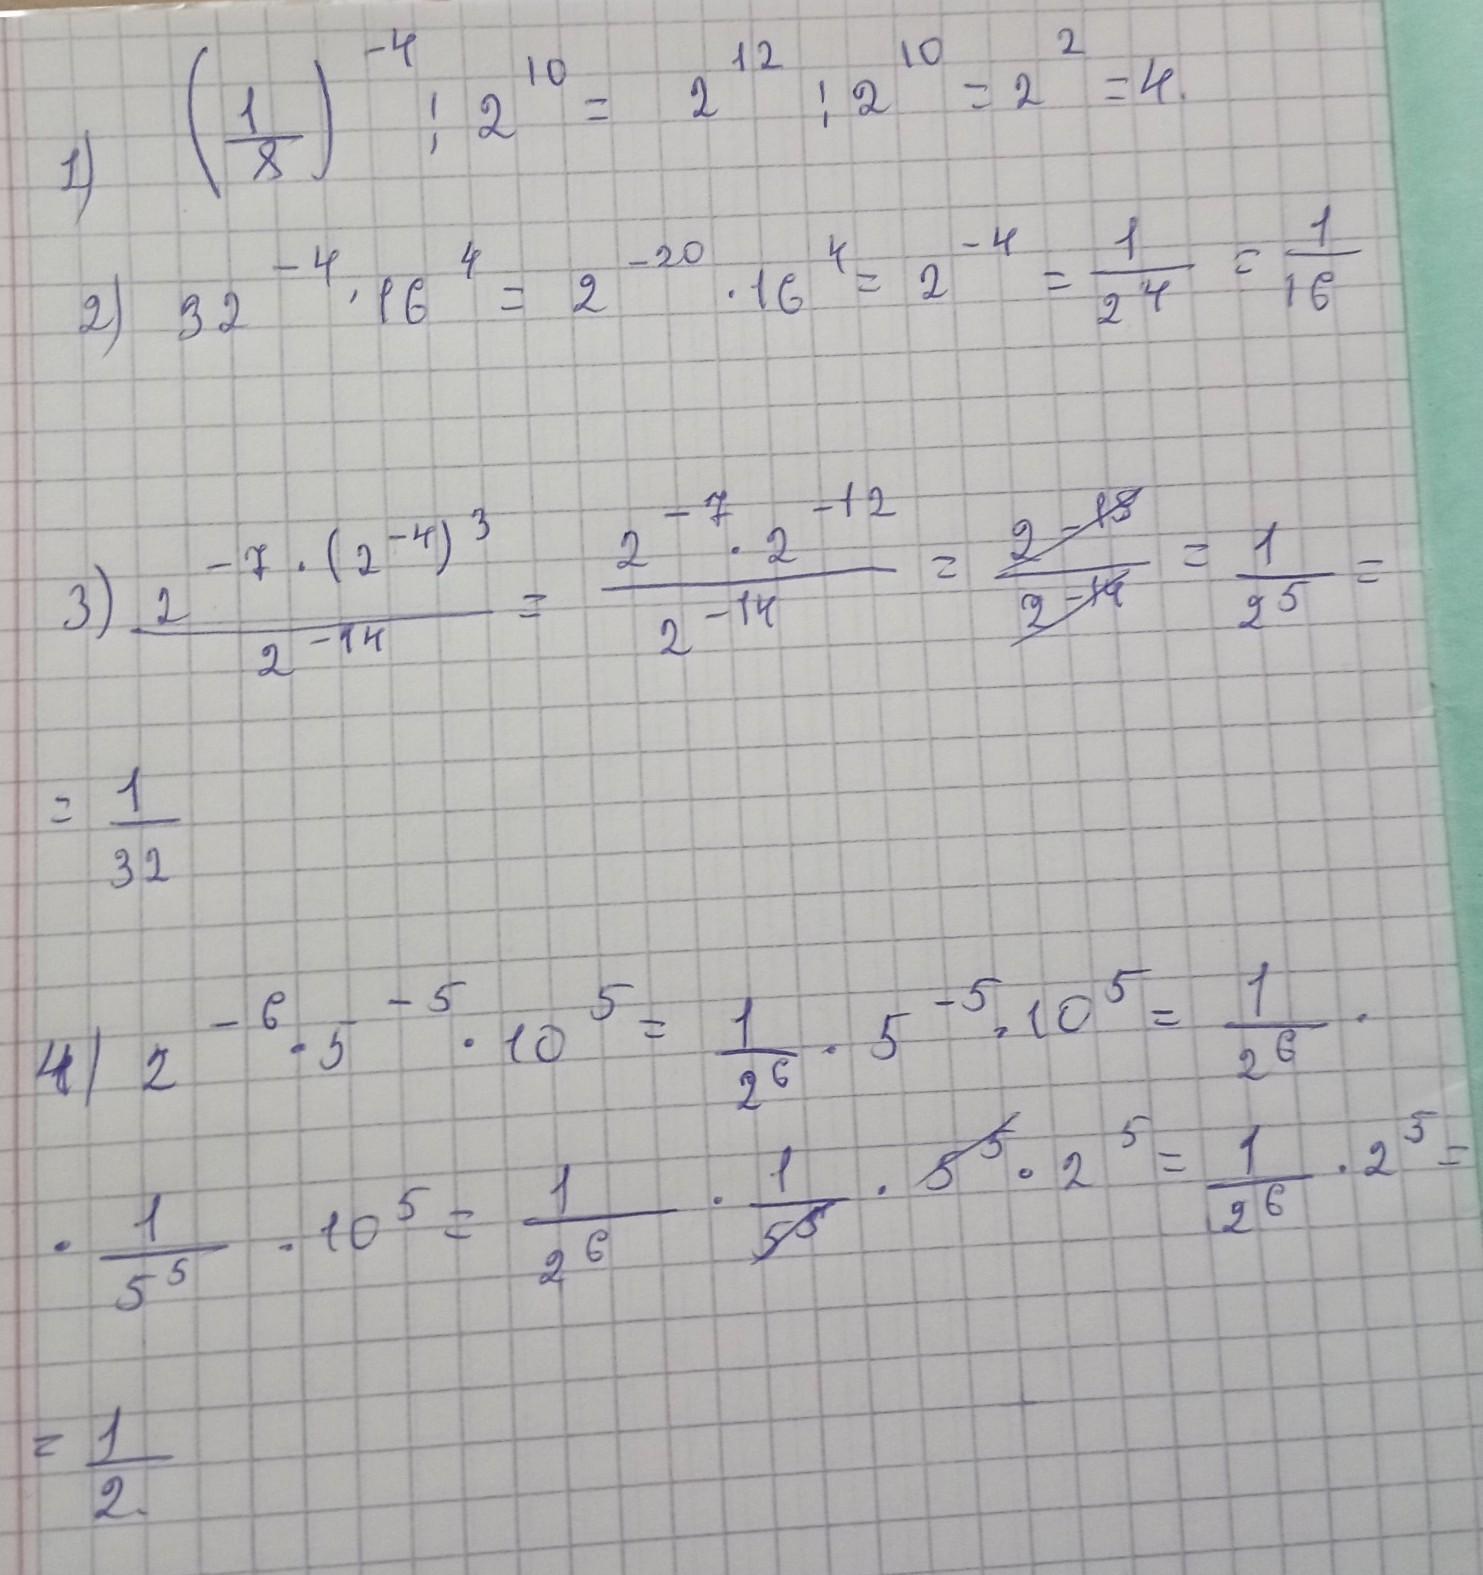 1) (1/8)^-4 : 2^10 = 2^12 : 2^10 = 2^2 = 4.
2) 32^-4 · 16^4 = 2^-20 · 16^4 = 2^-4 = 1/2^4 = 1/16
3) 2^-7 · (2^-4)^3 / 2^-14 = 2^-7 · 2^-12 / 2^-14 = 2^-19 / 2^-14 = 1/2^5 =
= 1/32
4) 2^-6 · 5^-5 · 10^5 = 1/2^6 · 5^-5 · 10^5 = 1/2^6 ·
· 1/5^5 · 10^5 = 1/2^6 · 1/5^5 · 5^5 · 2^5 = 1/2^6 · 2^5 =
= 1/2.